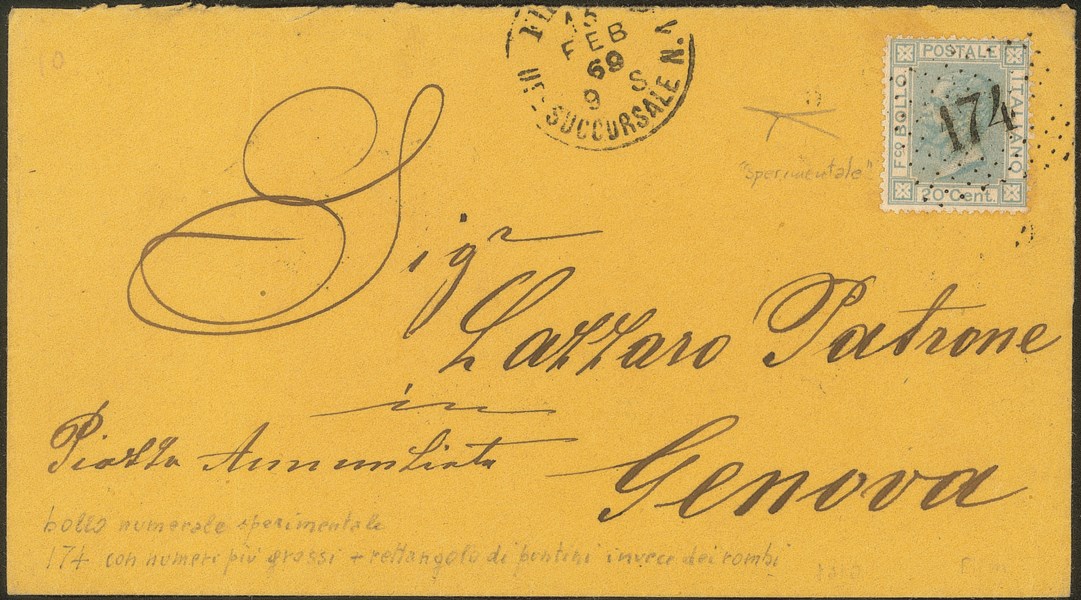 15
FEB
69
9 S
SUCCURSALE N.
POSTALE
Fco BOLLO
ITALIANO
20 Cent.
174
"sperimentale"
Sigr
Lazzaro Patrone
in
Piazza Annunziata
Genova
bollo numerale sperimentale
174 con numeri più grossi + rettangolo di puntini invece dei rombi